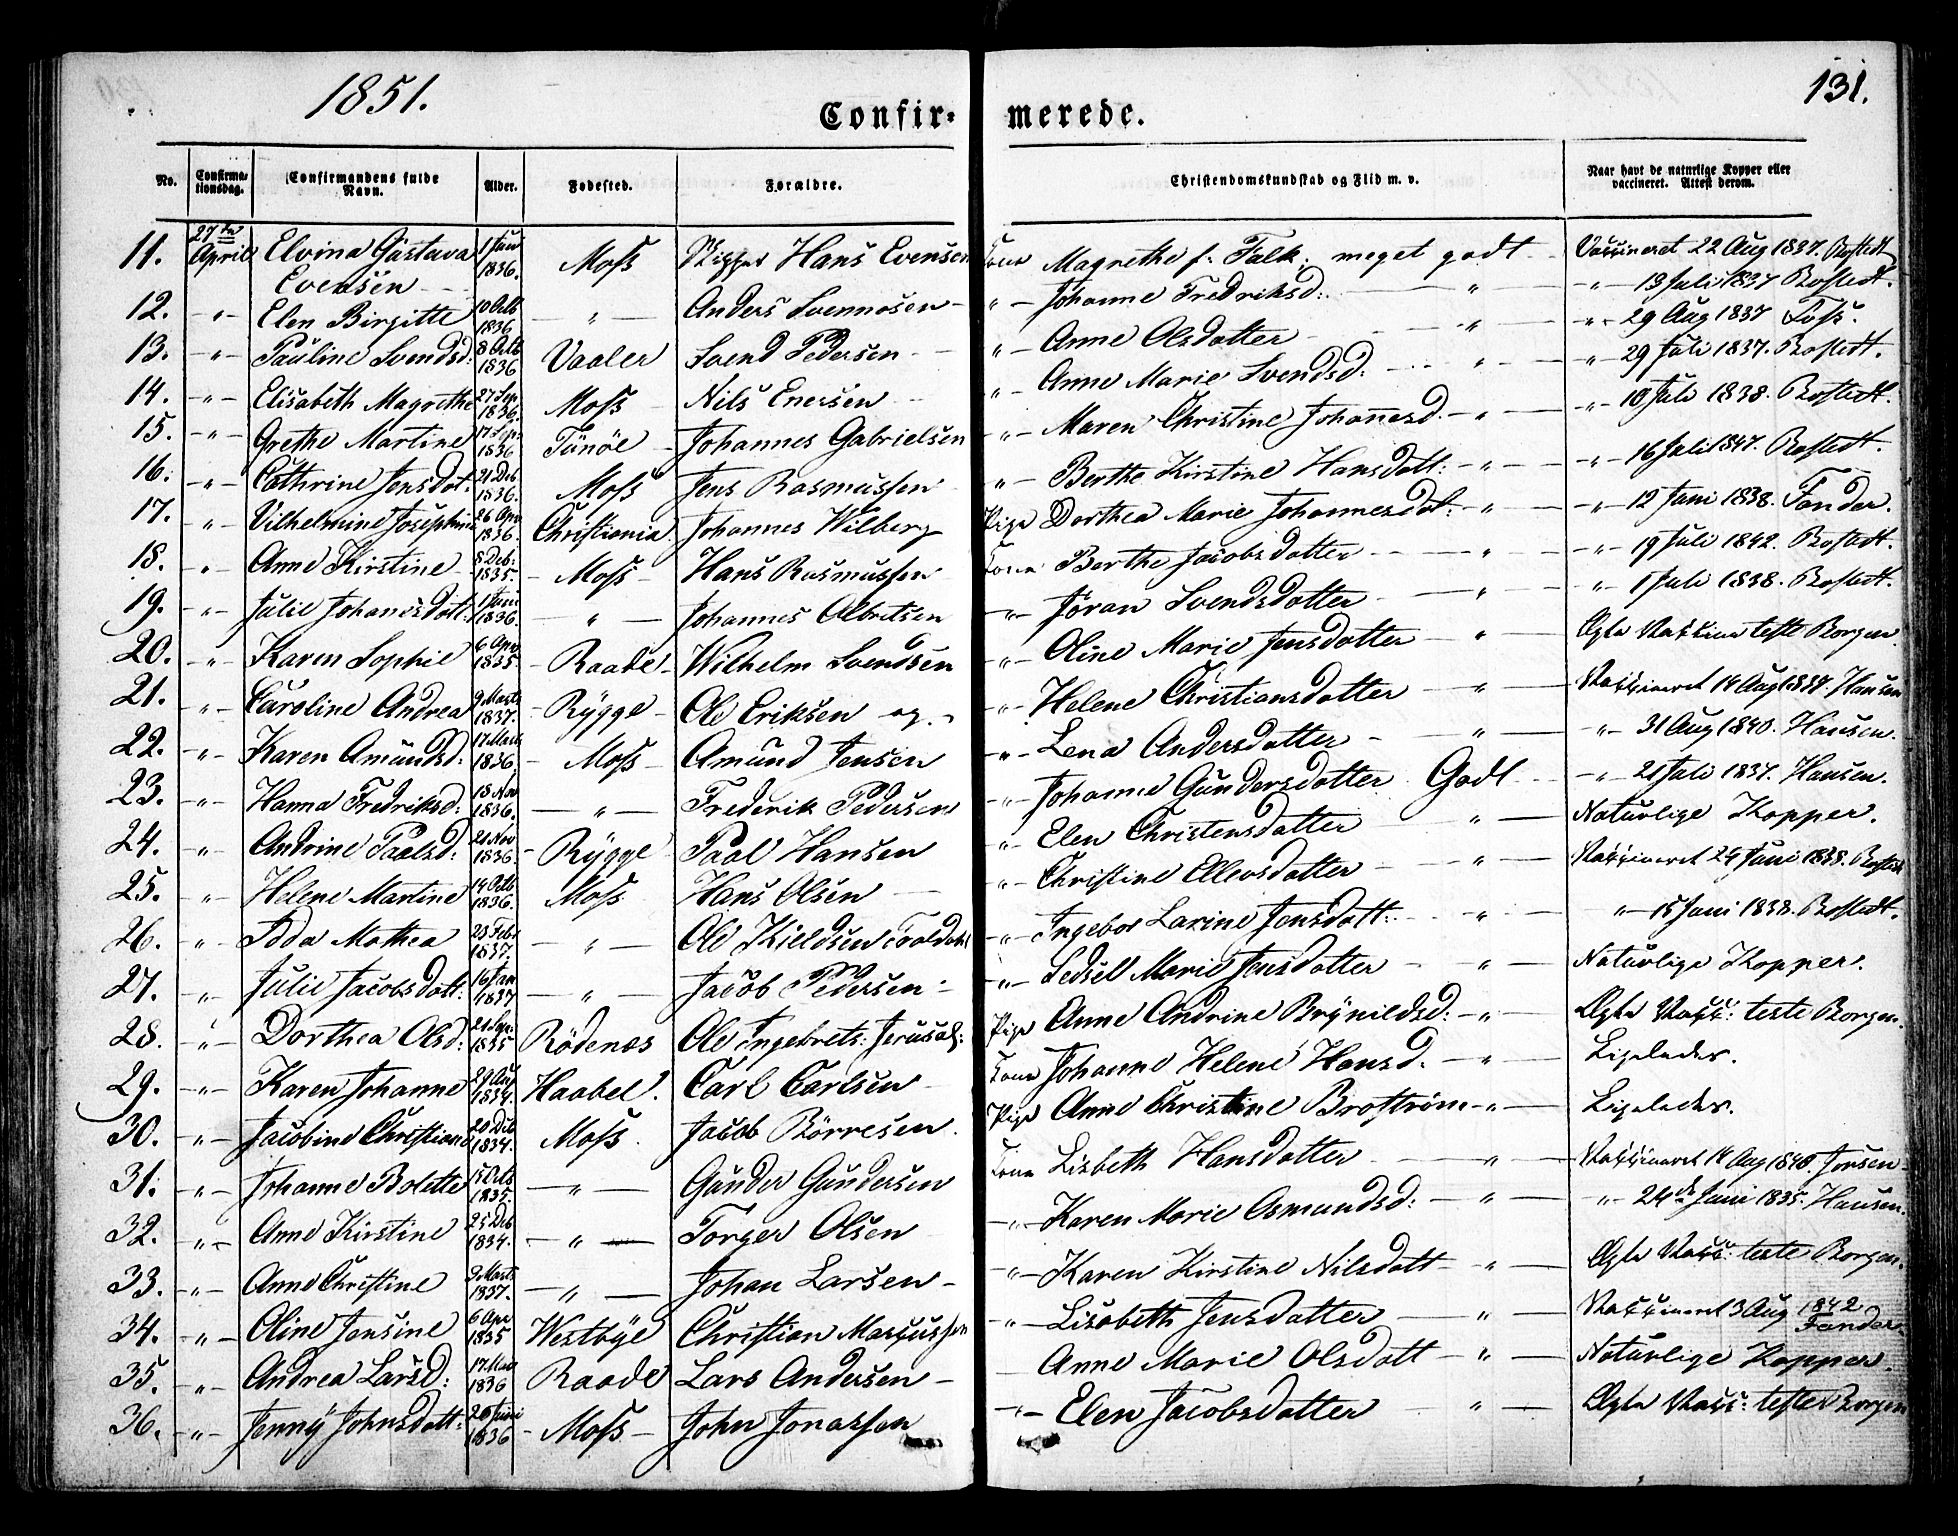 1851.
131.
Confir- merede.
No. Confirmationsdag. Confirmandens fulde Navn. Alder. Fødested. Forældre. Christendomskundskab og Flid m. v. Naar havt de naturlige Kopper eller vaccineret. Attest derom.
11. 27de April Elvina Gustava Evensen 1 Jan 1836. Moss Hans Evensen Kone Magrethe f. Falk. meget godt Vaccineret 22 Aug 1837. Bostedt
12. -"- Elen Birgitte 10 Octb 1836. -"- Anders Svennesen -"- Johanne Fredriksd: " -"- 13 Juli 1837 Bostedt.
13. -"- Pauline Svendsd: 8 Octb 1836 Vaaler Svend Pedersen -"- Anne Olsdatter " -"- 29 Aug 1837 Foss.
14. -"- Elisabeth Magrethe 27 Sep. 1836. Moss Nils Enersen -"- Anne Marie Svendsd: " -"- 29 Juli 1837. Bostedt.
15. -"- Grethe Martine 17 Sep. 1836 Tunöe Johannes Gabrielsen -"- Maren Christine Johanesd. " -"- 10 Juli 1838. Bostedt.
16. -"- Cathrine Jensdat. 21 Deb 1836. Moss Jens Rasmussen -"- Berthe Kirstine Hansdatt: " -"- 16 Juli 1847. Bostedt.
17. -"- Vilhelmine Josephine 26 Apr 1836. Christiania Johannes Wilberg Pige Dorthea Marie Johannesdat: " -"- 12 Juni 1838. Fander.
18. " Anne Kirstine 8 Deb: 1835. Moss Hans Rasmussen Kone Berthe Jacobsdatter " -"- 19 Juli 1842. Bostedt.
19. -"- Julie Johanesdatt: 1 Juni 1836. -"- Johannes Olbretsen -"- Jöran Svendsdatter " " 1 Juli 1838. Bostedt.
20. -"- Karen Sophie 6 Apr 1835. Raade Wilhelm Svendsen -"- Oline Marie Jensdatter " Ægte Vaccine teste Borgen.
21. " Caroline Andrea 9 Marts 1837. Rygge Ole Eriksen -"- Helene Christiansdatter " Vaccineret 14 Aug 1837. Hansen
22. " Karen Amundsd: 17 Marts 1836. Moss Amund Jensen -"- Lena Andersdatter " -"- 31 Aug 1840. Hansen.
23. " Hanna Fredriksd: 18 Nov 1836. -"- Frederik Pedersen -"- Johanne Gundersdatter Godt -"- 21 Juli 1837. Hansen.
24. " Andrine Paalsd: 21 Nov 1836. Rygge Paal Hansen " Elen Christensdatter " Naturlige Kopper.
25. " Helene Martine 14 Octb 1836. Moss Hans Olsen -"- Christine Ellevsdatter " Vaccineret 24 Juni 1838. Bostedt
26. " Idda Mathea 23 Febr 1837. -"- Ole Kieldsen -"- Ingebor Larine Jensdatt: " -"- 15 Juni 1838. Bostedt.
27. " Julie Jacobsdatt: 16 Jan 1837 -"- Jacob Pedersen -"- Sedsel Marie Jensdatter " Naturlige Kopper.
28. " Dorthea Olsd: 21 Sep. 1835 Rödenæs Ole Ingebrets: Jerusal: Pige Anne Andrine Brynildsd: " Ægte Vacc: teste Borgen.
29. -"- Karen Johanne 29 Aug 1834. Haabel. Carl Carlsen Kone Johanne Helene Hansd. " Ligeledes.
30. -"- Jacobine Christiane 20 Deb 1834. Moss. Jacob Börresen. Pige Anne Christine Broström " Ligeledes.
31. -"- Johanne Bolette 1835. -"- Gunder Gundersen Kone Lisbeth Hansdatter " Vaccineret 14 Aug 1840. Jensen
32. -"- Anne Kirstine 25 Deb 1834. -"- Torger Olsen -"- Karen Marie Osmundsd: " " 24de Juni 1835. Hansen.
33. -"- Anne Christine 9 Marts 1837. -"- Johan Larsen -"- Karen Kirstine Nilsdatt " Ægte Vacc: teste Borgen.
34. -"- Oline Jensine 6 Apr 1835 Westbye Christian Marcussen -"- Lisabeth Jensdatter " Vaccineret 3 Aug 1842 Fander.
35. -"- Andrea Larsd: 17 Mar 1836 Raade Lars Andersen Anne Marie Olsdatt " Naturlige Kopper.
36. -"- Jenny Johnsdatt: 26 Juni 1836 Moss John Jonassen -"- Elen Jacobsdatter " Ægte Vacc: teste Borgen